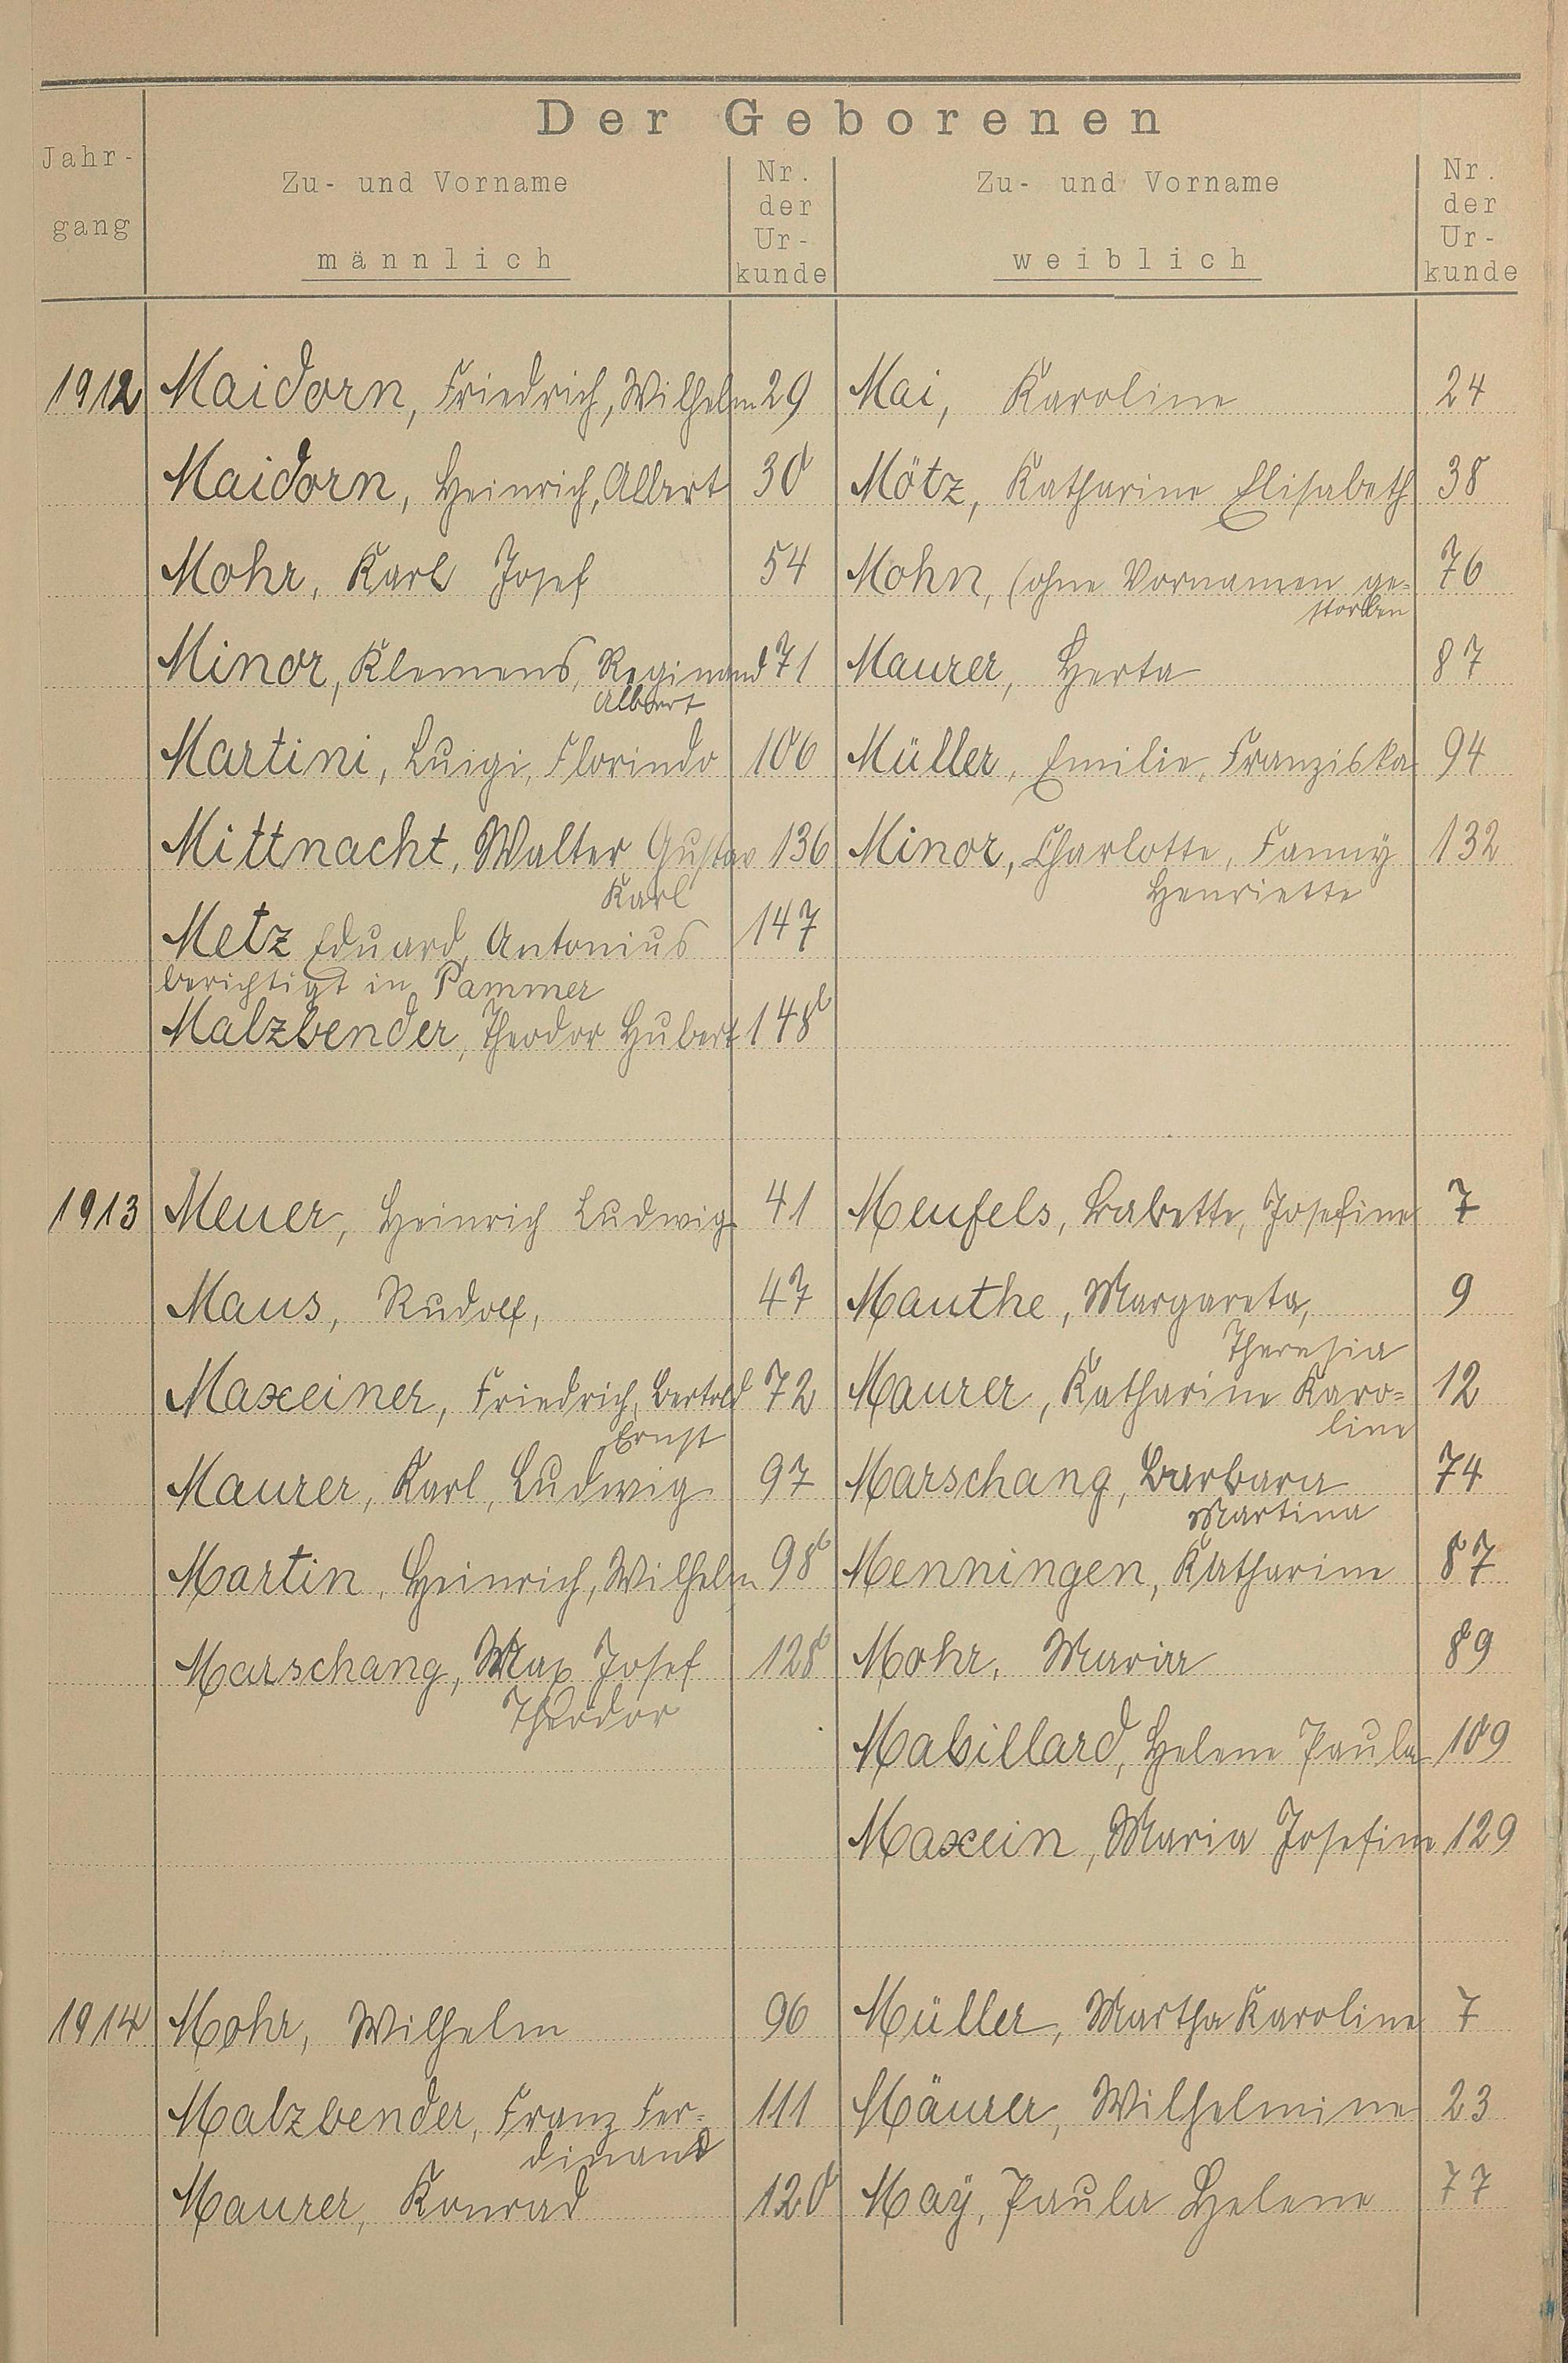 Der Geborenen
Jahr-
gang
Zu- und Vorname
männlich
Nr.
der
Ur-
kunde
Zu- und Vorname
weiblich
Nr.
der
Ur-
kunde
1912 Maidorn, Friedrich, Wilhelm 29 Mai, Karoline 24
Maidorn, Heinrich, Albert 30 Mötz, Katharine Elisabeth 38
Mohr, Karl Josef 54 Mohn, (ohne Vornamen ge- 76
storben
Minor, Klemens, Reginand 71 Maurer, Herta 87
Albert
Martini, Luigi, Florindo 106 Müller, Emilie, Franziska 94
Mittnacht, Walter Gustav 136 Minor, Charlotte, Fanny 132
Karl Henriette
Metz Eduard, Antonius 147
berichtigt in Pammer
Malzbender, Theodor Hubert 148
1913 Meuer, Heinrich Ludwig 41 Meufels, Babette, Josefine 7
Maus, Rudolf, 47 Mauthe, Margareta, 9
Theresia
Maxeiner, Friedrich, Bertold 72 Maurer, Katharine Karo- 12
Ernst line
Maurer, Karl, Ludwig 97 Marschang, Barbara 74
Martina
Martin, Heinrich, Wilhelm 98 Menningen, Katharine 87
Marschang, Max Josef 128 Mohr, Maria 89
Theodor
Mabillard, Helene Paula 109
Maxein, Maria Josefine 129
1914 Mohr, Wilhelm 96 Müller, Martha Karoline 7
Malzbender, Franz Fer- 111 Mäurer, Wilhelmine 23
dinand
Maurer, Konrad 120 Maÿ, Paula Helene 77